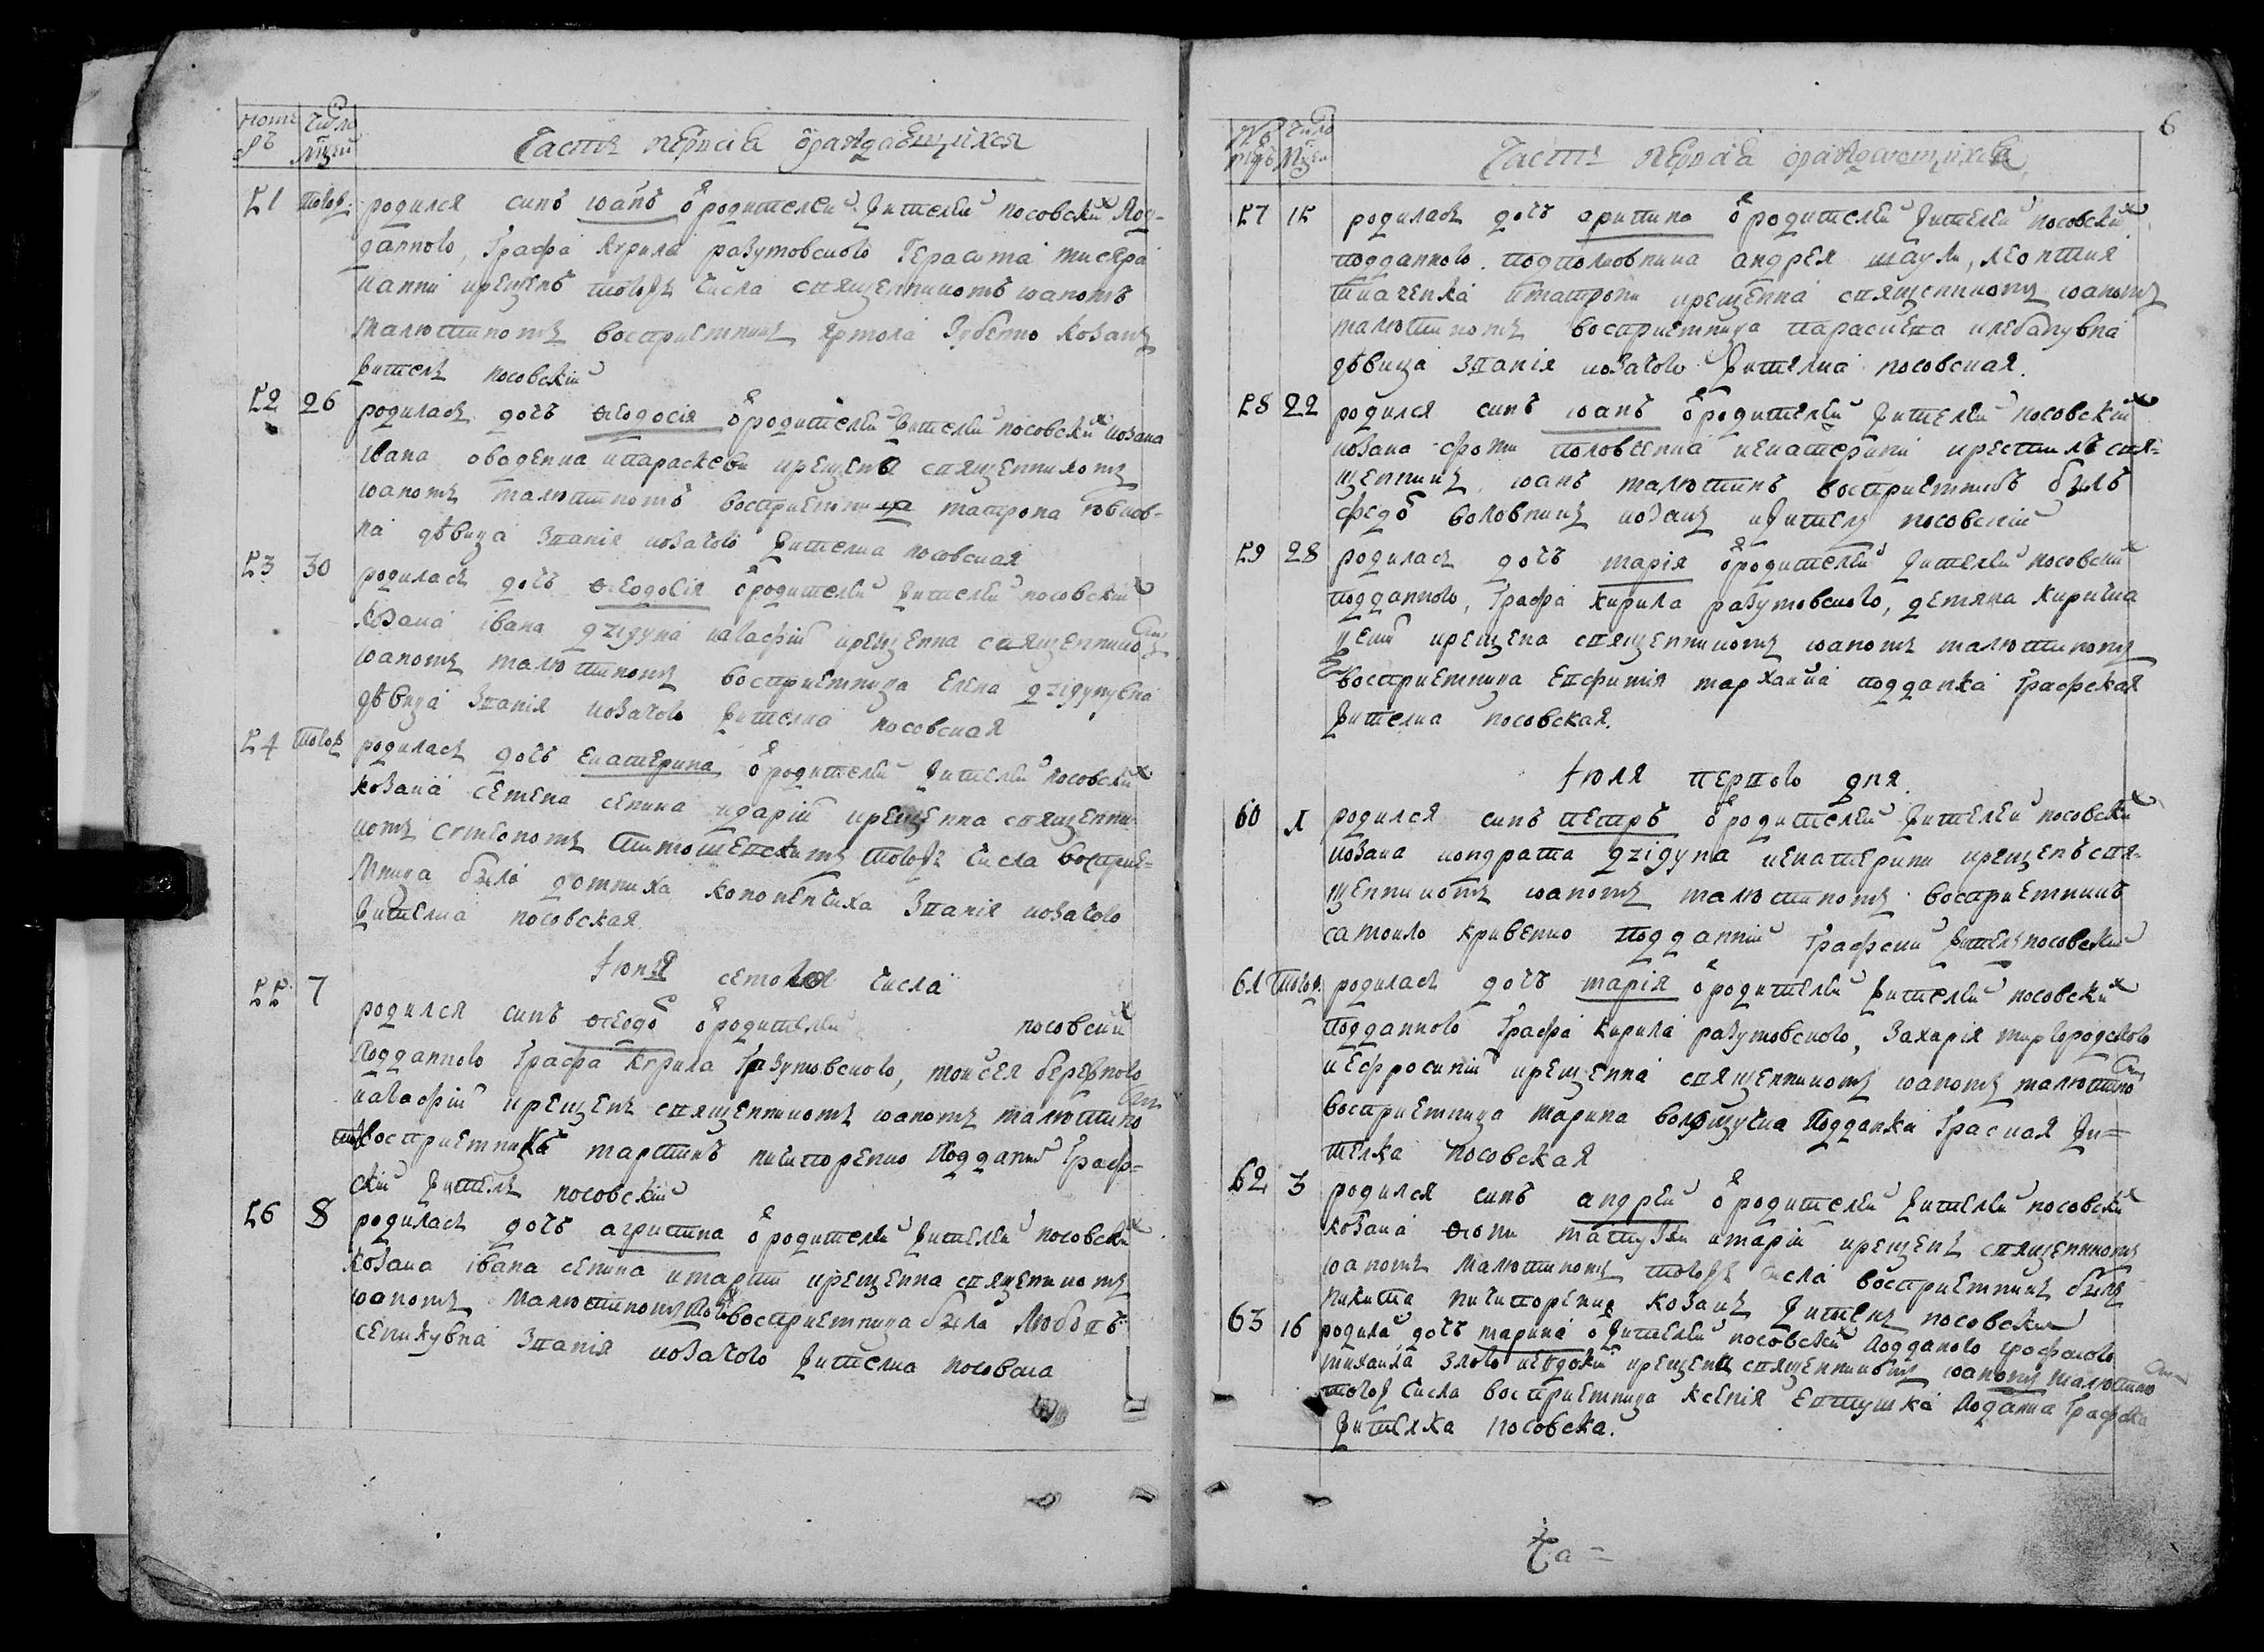 Номе Число
ръ мцей
Часть первая ораждающихся
51 тогож родился синъ иоанъ о родителей жителей носовских под-
данного, Графа Кѵрила разумовского Герасима мисюра
и анни крещенъ тогожъ числа священникомъ иоаномъ
малютиномъ восприемникъ ярмола зубенко козакъ
житель носовскій
52 26 родилась дочъ ѳеодосія о родителей жителей носовских козака
ивана оваденка и параскеви крещена священникомъ
иоаномъ малютиномъ восприемница матрона
на дѣвица званія козачого жителка носовская
53 30 родилась дочъ ѳеодосія о родителей жителей носовских
козака івана дзигуна и агафіи крещенна священникомъ
иоаномъ малютиномъ восприемница Елена дзигунувна
дѣвица званія козачого жителка носовская
54 тогож родилась дочъ екатерина о родителей жителей носовских
козака семена сепика и даріи крещенна священни
комъ сѵмеономъ тимошевскимъ тогожъ числа восприе-
мница била домниха кононенчиха званія козачого
жителка носовская
Iюня семого числа
55 7 родился синъ ѳеодо о родителей носовских
Подданного Графа Кѵрила Разумовского, моисея беревного
и агафіи крещенъ священникомъ иоаномъ малютино
восприемникъ мартинъ ничипоренко Подданий Граф-
скій житель носовскій
56 8 родилась дочъ агрипина о родителей жителей носовских
козака івана сепика и марии крещенна священникомъ
иоаномъ малютиномъ восприемница била Любовъ
сепикувна званія козачого жителка носовска
6
Но Число
меръ мцей
Часть первая ораждающихся
57 15 родилась дочъ ирипина о родителей жителей носовских
подданного подполковника андрея шаули, леонтия
ткаченка и матрони крещенна священникомъ иоаномъ
малютиномъ восприемница параскева клебанувна
дѣвица званія козачого жителка носовская.
58 22 родился синъ иоанъ о родителей жителей носовских
козака фоми половченка и екатерини крестилъ свя-
щенникъ иоанъ малютинъ восприемникъ билъ
федо воловникъ козакъ и житель носовскій
59 28 родилась дочъ марія о родителей жителей носовских
подданного, Графа Кирила разумовского, демяна киричка
и еіи крещена священникомъ иоаномъ малютиномъ
восприемница Евфимия подданка Графская
жителка носовская.
Iюля первого дня.
60 1 родился синъ петръ о родителей жителей носовских
козака кондрата дзигуна и екатерини крещенъ свя-
щенникомъ иоаномъ малютиномъ восприемникъ
самоило кривенко подданній Графскій житель носовскій
61 тогож родилась дочъ марія о родителей жителей носовских
подданного Графа кирила разумовского, Захарія миргородского
и ефросиніи крещенна священникомъ иоаномъ малютино
восприемница марина ПодданкаГраская жи=
телка носовская
62 3 родился синъ андрей о родителей жителей носовских
козака и маріи крещенъ священникомъ
иоаномъ малютиномъ тогожъ числа восприемникъ билъ
никита ничипоренко козакъ житель носовскій
63 16 родила дочъ марина о жителей носовских подданого графского
михаила злого и евдокіи крещена священникомъ иоаномъ малютино
тогож числа восприемница ксенія евтушка Подданка Графска
жителка носовска.
Ча=